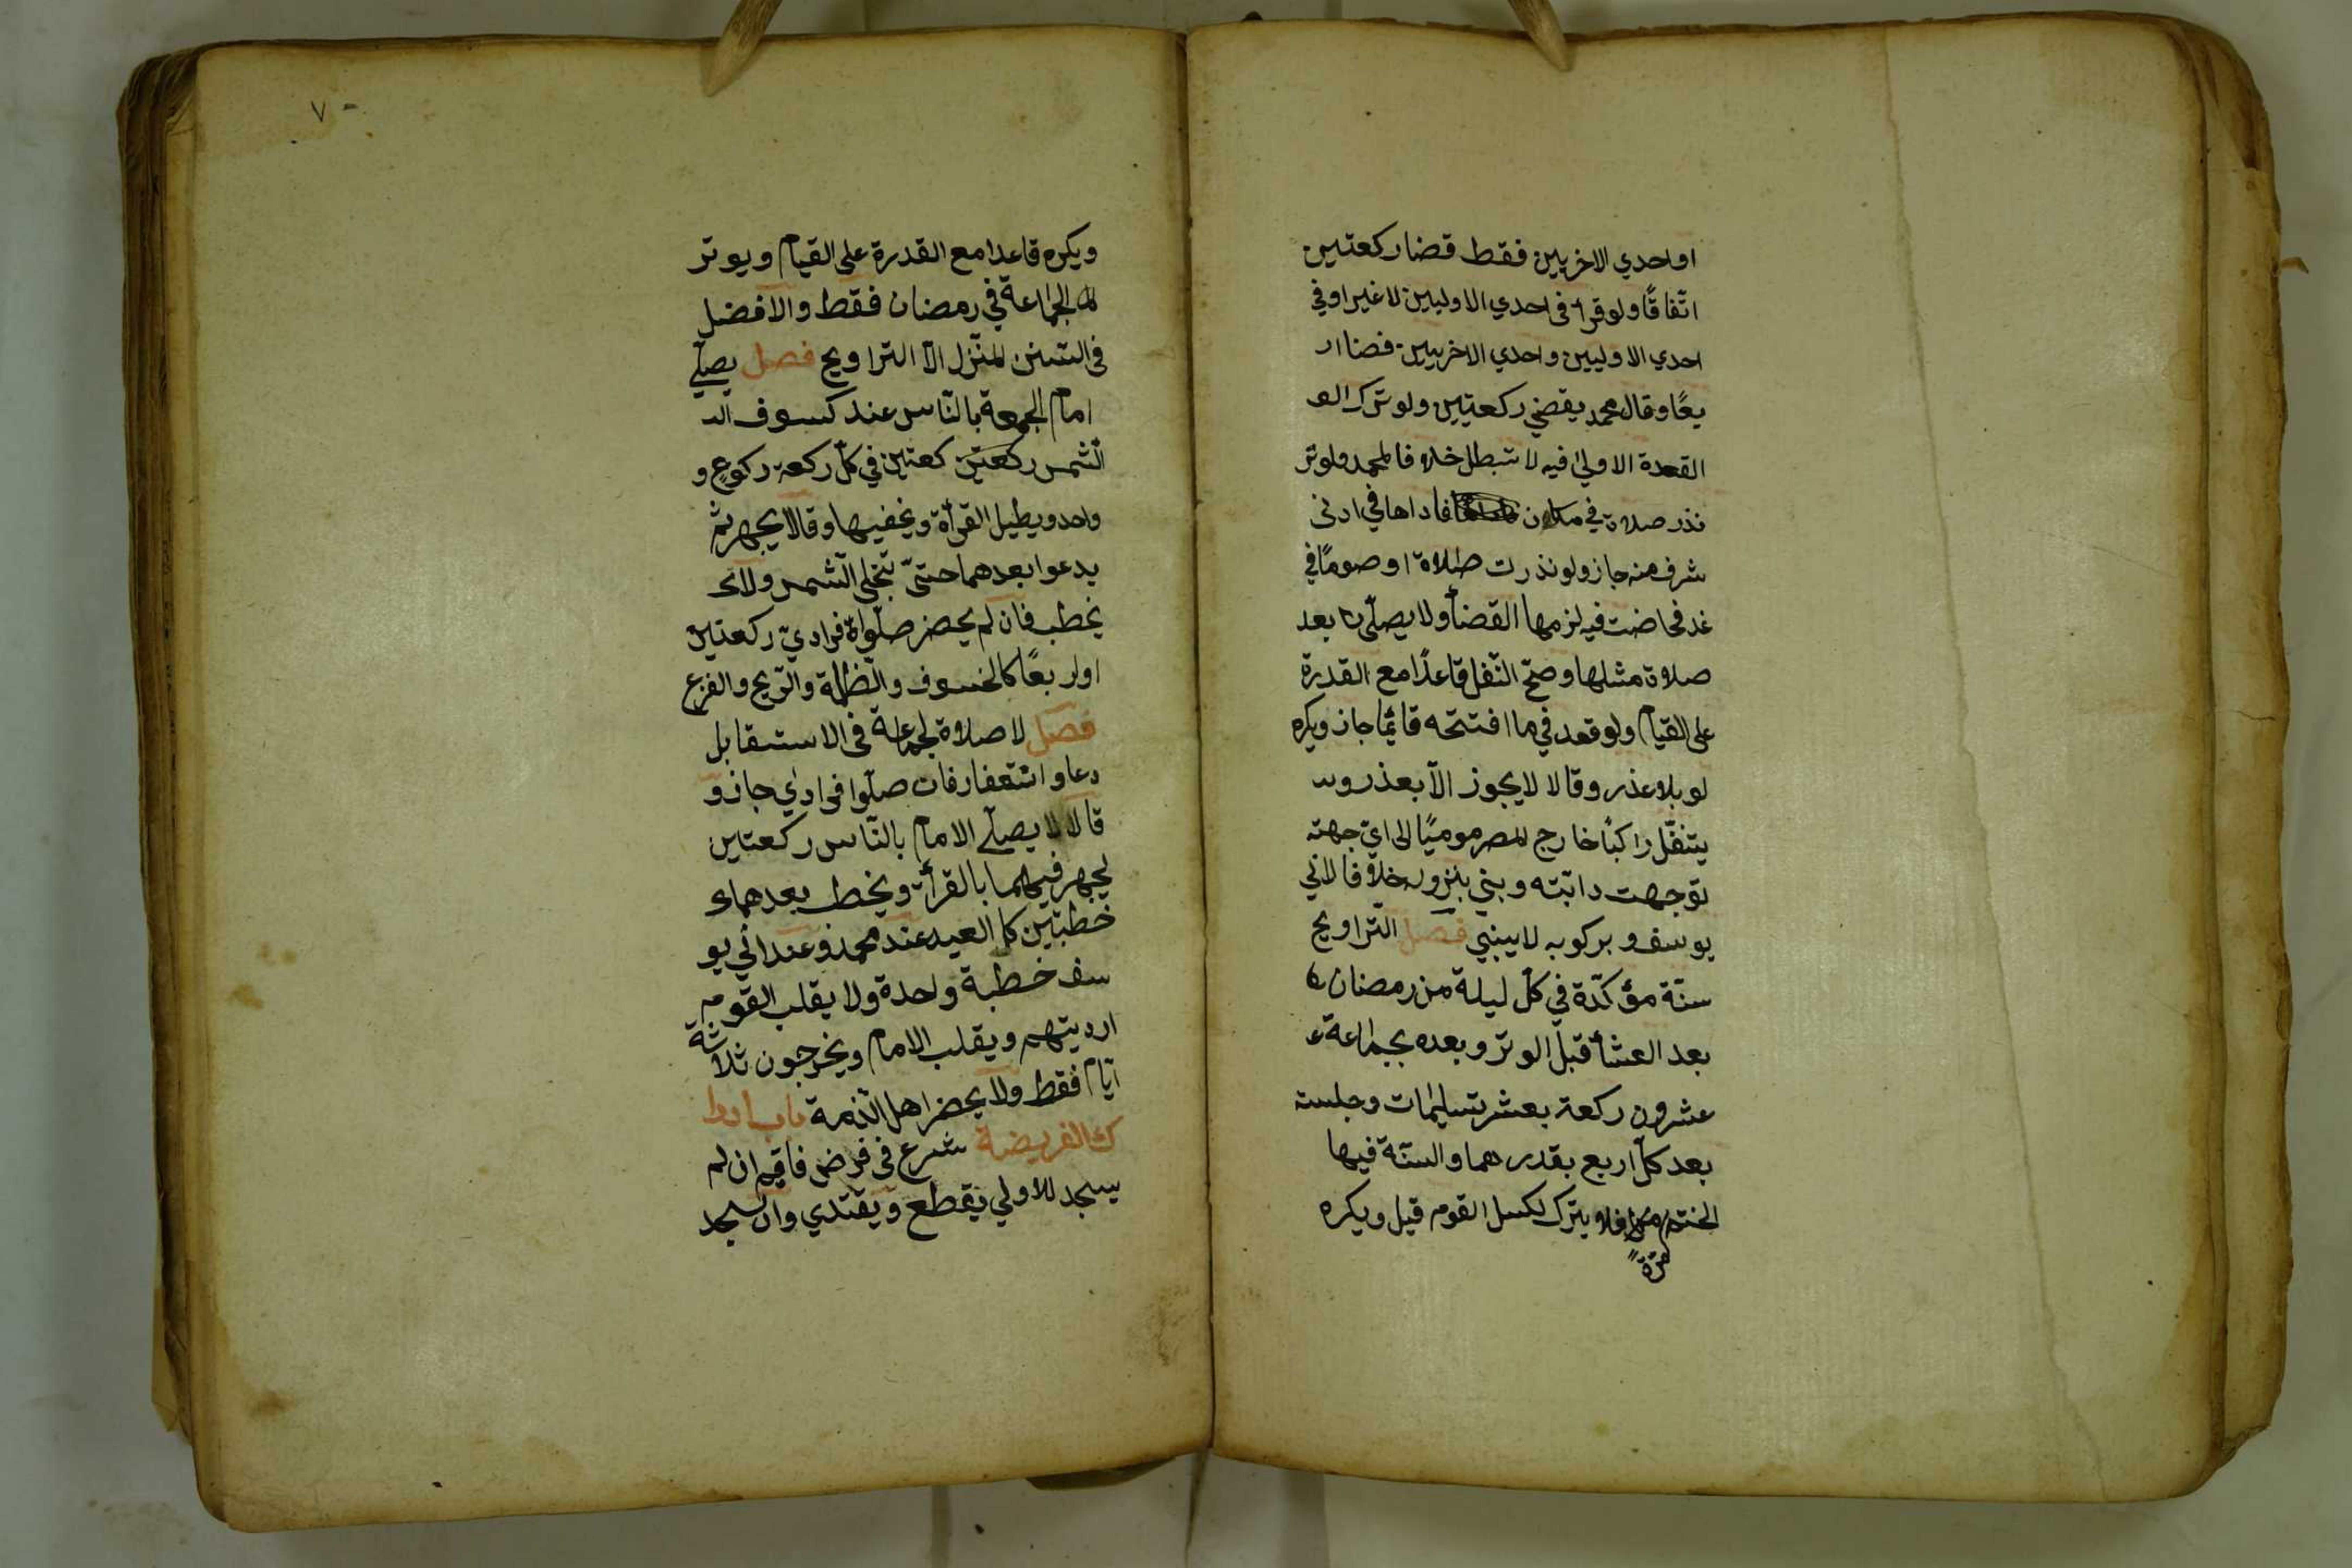 او احدي الاخريين فقط قضا ركعتين
اتّفاقًا ولو قرأ فى احدي الاوليين لا غير او في
احدي الاوليين واحدي الاخريين قضا ار
بعًا وقال محمد يقضي ركعتين ولو ترك الو
القعدة الاولي فيه لا تبطل خلافا لمحمد ولو تر
نذر صلاة في مكان فاداها في ادنى
شرف منه جاز ولو نذرت صلاة او صومًا في
غد فحاضت فيه لزمها القضأ ولا يصلّي بعد
صلاة مثلها وصحّ النّفل قاعدًا مع القدرة
على القيام ولو قعد في ما افتتحه قائمًا جاز ويكره
لو بلا عذر وقالا لا يجوز الّا بعذر و
يتنفّل راكبًا خارج المصر موميًا الى ايّ جهته
توجهت دابّته وبني بنزوله خلافا لابي
يوسف و بركوبه لا يبني فصل التّراويح
سنّة مؤكّدة في كلّ ليلة من رمضان
بعد العشأ قبل الوتر وبعده بجماعة
عشرون ركعة بعشر تسليمات وجلسته
بعد كلّ اربع بقدرهما والسنّة فيها
الختم فلا يترك لكسل القوم قيل ويكره
مرّةً
٧٠
ويكره قاعدا مع القدرة على القيام ويوتر
الجماعة في رمضان فقط والافضل
فى السّنن المنزل الّا التراويح فصل يصلّي
امام الجمعة بالنّاس عند كسوف الشـ
الشّمس ركعتين كعتين في كلّ ركعة ركوع و
واحد ويطيل القرأة ويخفيها وقالا يجهر ثم
يدعوا بعدهما حتىّ تنجلي الشّمس ولا
يخطب فان لم يحضر صلّواة فرادىّ ركعتين
او اربعًا كالخسوف والظّلمة والرّيح والفزع
فصل لا صلاة لجماعة فى الاستسقا بل
دعا واستغفار فان صلّوا فرادي جاز و
قالا لا يصلّي الامام بالنّاس ركعتين
يجهر فيهما بالقرأة ويخطب بعدهما
خطبتين كالعيد عند محمد وعند ابي يو
سف خطبة واحدة ولا يقلب القوم
ارديتهم ويقلب الامام ويخرجون ثلاثة
ايّام فقط ولا يحضر اهل الذّمة باب ادرا
ك الفريضة شرع فى فرض فاقيم ان لم
يسجد للاولي يقطع ويقتدي وان سجد